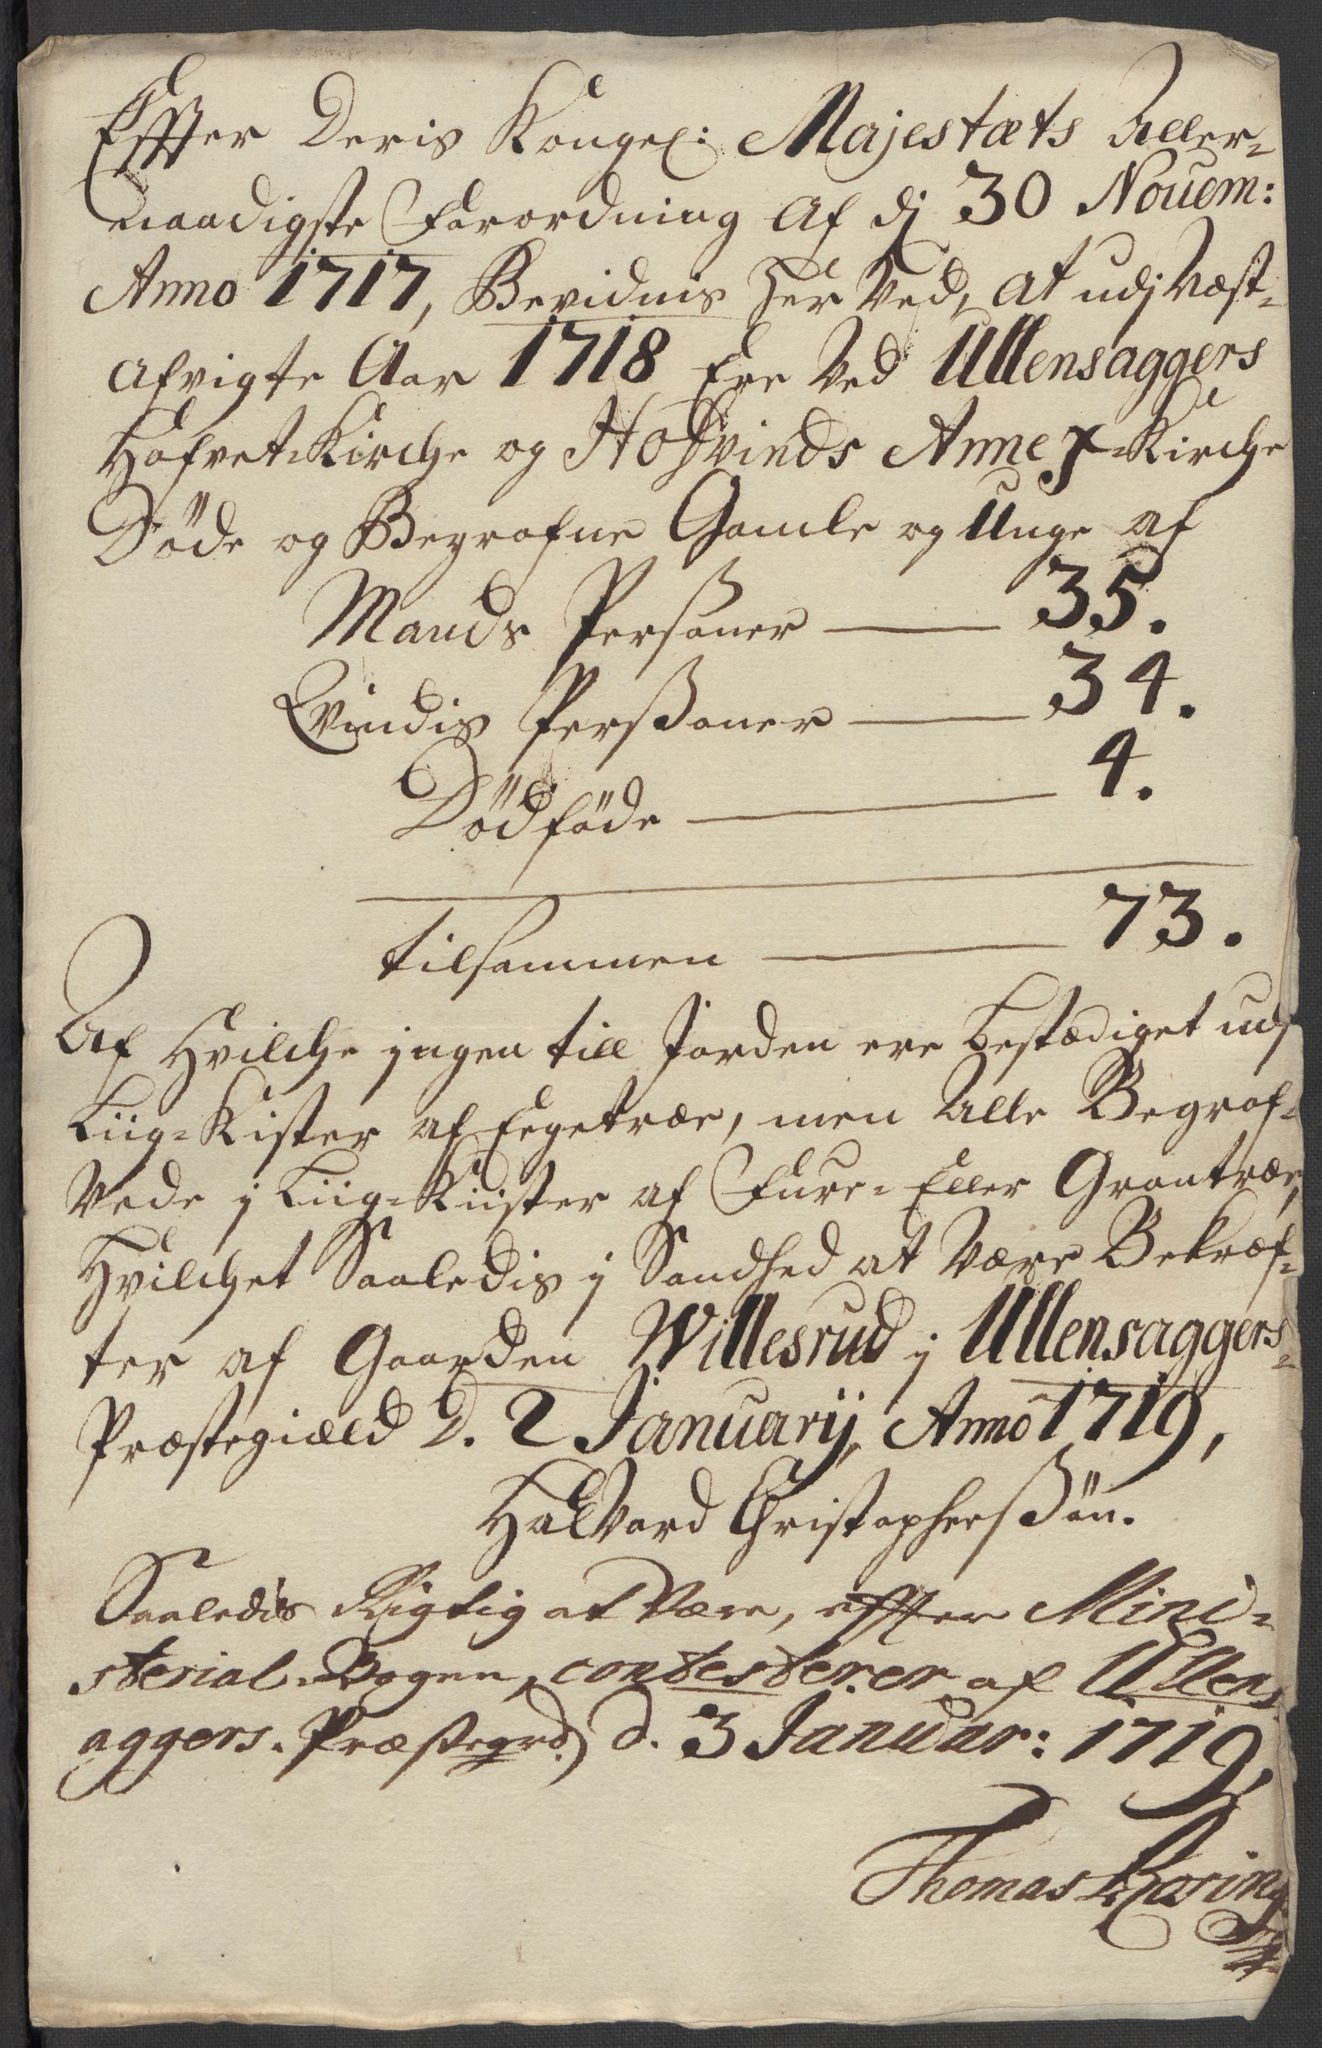 Effter Deris Kongel: Majestæts Aller-
naadigste Forordning af dj 30 Novem:
Anno 1717, Bevidnis Her Ved, at udj Næst-
afvigte Aar 1718 Ere Ved Ullensaggers
Hofvet-Kirche og Hofvinds Annex-Kirche
Döde og Begrafne Gamle og Unge af
Mands Persaner 35.
Qvindis Perßoner 34.
Dödföde 4.
tilsammen 73.
Af Hvilche jngen till Jorden ere bestædiget udj
Liig-Kister af Eegetræe, men Alle Begraf-
vede j Liig-Kiister af Fure- Eller Grantræe,
Hvilchet Saaledis j Sandhed at Være Bekræf-
ter af Gaarden Willesrud j Ullensaggers-
Præstegiæld D. 2 Januarij, Anno 1719,
HalVord Christopherßön.
Saaledis Rigtig at Være, effter Mini-
sterial-Bogen, contesterer af Ullens
aggers-Præstegrd) d. 3 Januar: 1719,
Thomas Rosing